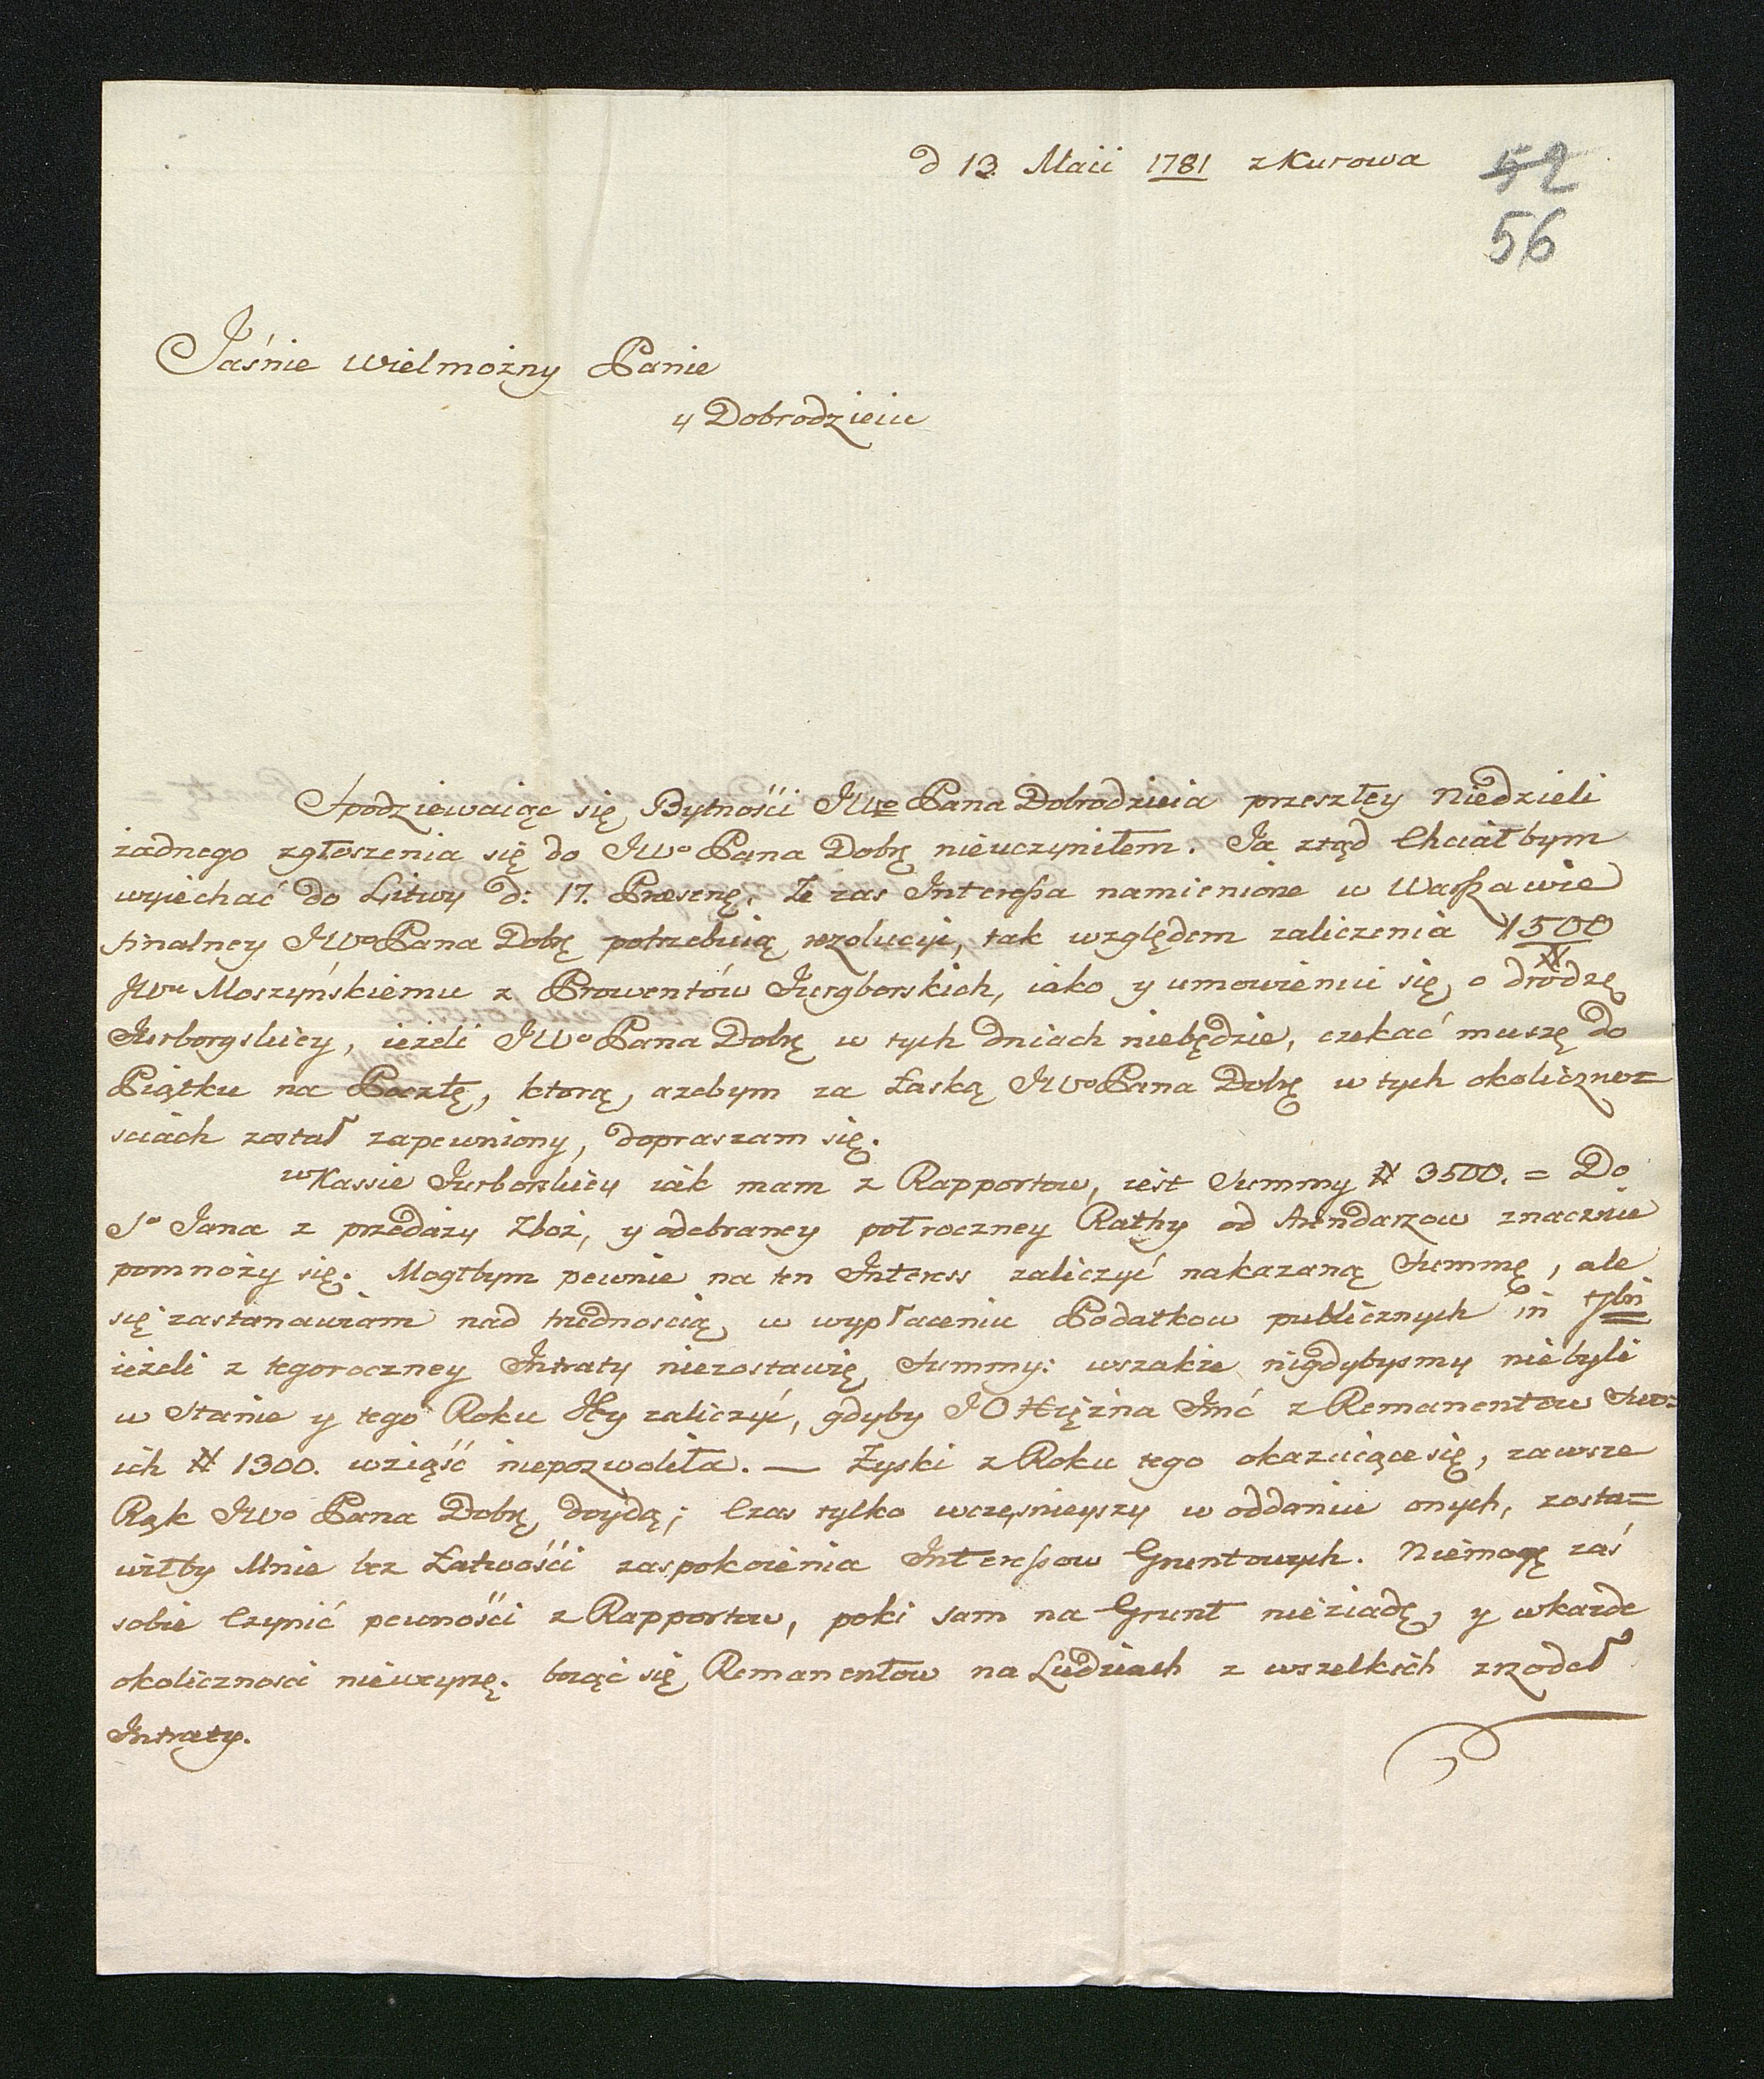 d 13. Maii 1781 z Kurowa
52
56
Jaśnie Wielmożny Panie
y Dobrodzieiu
Spodziewaiąc się Bytnośći JWo Pana Dobrodzieia przeszłey Niedzieli
żadnego zgłoszenia się do JWo Pana Dobrę nieuczyniłem. Ja ztąd Chciałbym
wyiechać do Litwy d: 17. Praesenę. Ze zas Interessa namienione w Warszawie
finalney JWo Pana Dobrę potrzebuią rezolucyi, tak względem zaliczenia 1500
JWu Moszyńskiemu z Prowentów Jurgborskich, iako y umowieniu się o drodzę
Jurborgskiey, ieżeli JWo Pana Dobrę w tych dniach niebędzie, czekać muszę do
Piątku na Pocztę, ktorą, azebym za Łaską JWo Pana Dobrę w tych okolicznoz=
sciach został zapewniony, dopraszam się.
w Kassie Jurborskiey iak mam z Rapportow, iest Summy # 3500. = Do
So Jana z przedaży Zboż, y odebraney połroczney Rathy od Arendarzow znacznie
pomnoży się. Mogłbym pewnie na ten Interess zaliczyć nakazaną Summę, ale
się zastanawiam nad trudnoscią w wypłaceniu Podatkow publicznych in 7bri
ieżeli z tegoroczney Intraty niezostawię Summy: wszakże nigdybysmy niebyli
w Stanie y tego Roku Jey zaliczyć, gdyby J O Xiężna Jmć z Remanentow Swo=
ich # 1300. wziąść niepozwoliła. — Zyski z Roku tego okazuiące się, zawsze
Rąk JWo Pana Dobrę doydą; Czas tylko wcześnieyszy w oddaniu onych, zosta=
wiłby Mnie bez Łatwośći zaspokoienia Interessow Gruntowych. Niemogę zaś
sobie Czynić pewnośći z Rapportow, poki sam na Grunt nieziadę, y wkażde
okolicznosci niewzyrzę. boiąc się Remanentow na Ludziach z wszelkich zrzodeł
Intraty.